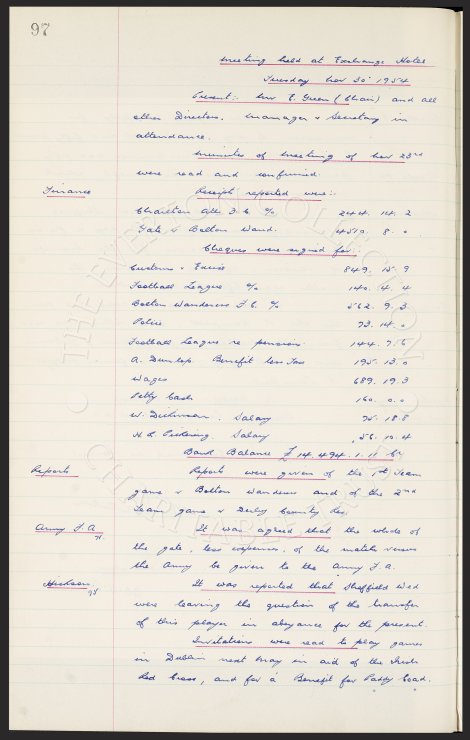 97
Meeting held at Exchange Hotel
Tuesday Nov 30th 1954
Present: Mr E. Green (Chair) and all
other Directors. Manager & Secretary in
attendance.
Minutes of Meeting of Nov 23rd
were read and confirmed.
Finance Receipts reported were:-
Charlton Ath. F.C. %, 244. 14. 2
Gate v Bolton Wand. 4519. 8. 0
Cheques were signed for:-
Customs & Excise 849. 15. 9
Football League % 140. 4. 4
Bolton Wanderers F.C. % 562. 9. 3
Police 73. 14. 0
Football League re pensions 144. 7. 6
A. Dunlop. Benefit less Tax 195. 13. 0
Wages 689. 19. 3
Petty Cash 160. 0. 0
W. Dickinson. Salary 75. 18. 8
H. R. Pickering. Salary 56. 10. 4
Bank Balance £ 14,494. 1. 11
Reports Reports were given of the 1st Team
game v Bolton Wanderers and of the 2nd
Team game v Derby County Res.
Army F.A. It was agreed that the whole of
the gate, less expenses, of the match versus
the Army be given to the Army F.A.
It was reported that Sheffield Wed
were leaving the question of the transfer
of this player in abeyance for the present.
Invitations were read to play games
in Dublin next May in aid of the Irish
Red Cross, and for a Benefit for Paddy Coad.
THE EVERTON COLLECTION
CHARITABLE TRUST